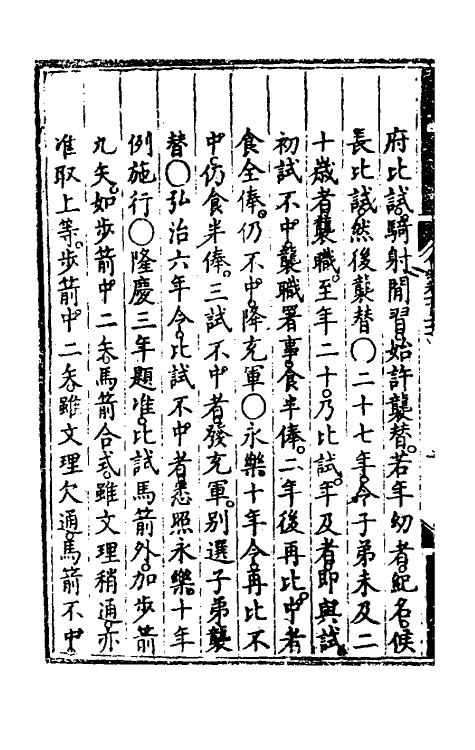 府比試。騎射閒習。始許襲替。若年幼者。紀名。候
長比試。然後襲替〇二十七年。令子弟未及二
十歲者襲職。至年二十。乃比試。年及者。即與試。
初試不中。襲職署事。食半俸。二年後再比。中者
食全俸。仍不中。降充軍〇永樂十年令。再比不
中。仍食半俸。三試不中者。發充軍。別選子弟襲
替〇弘治六年令。比試不中者。悉照永樂。十年
例施行〇隆慶三年題准。比試馬箭外。加步箭
九矢。如步箭中二矢。馬箭合式。雖文理稍通。亦
准取上等。步箭中二矢。雖文理欠通。馬箭不中